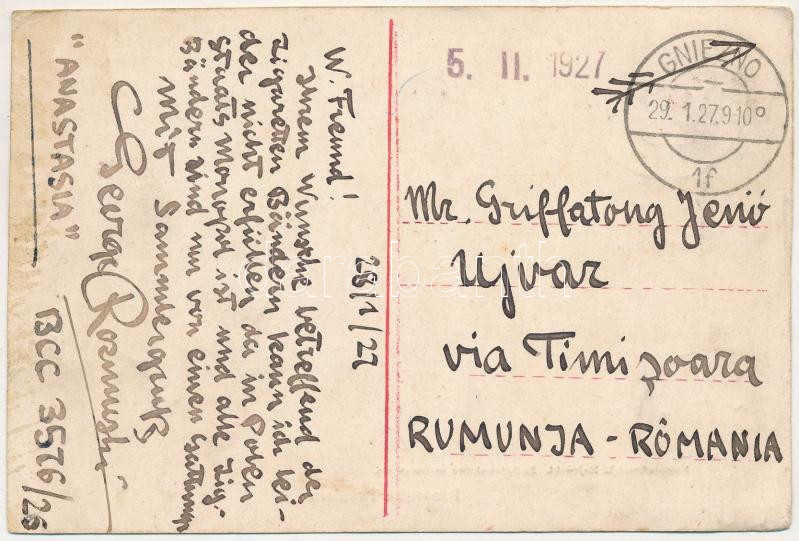 28/1/27
W. Freund!
Ihrem Wunsche betreffend der
Zigaretten Bändern kann ich lei-
der nicht erfüllen, da in Polen
Staats Monopol ist und alle Zig-
Bändern sind nur von einen Gattung
Mit Sammlergruß
George
"ANASTASIA"
BCC 3576/26
5. II. 1927
GNIEZNO
29. 1.27.9-10⁰
1f
Mr. Griffatong Jenő
Ujvar
via Timişoara
RUMUNJA - RÔMANIA
darabanth